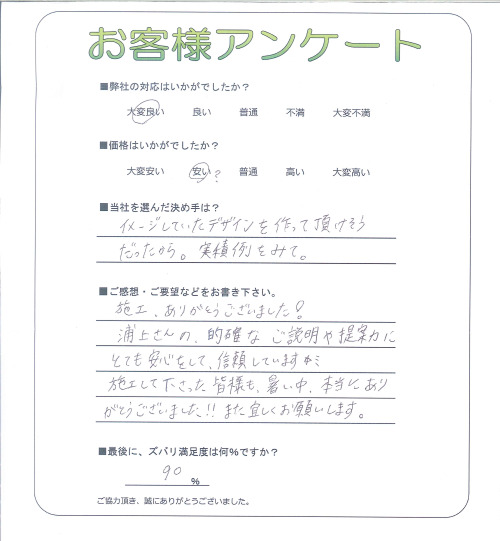 お客様アンケート
■弊社の対応はいかがでしたか?
大変良い 良い 普通 不満 大変不満
■価格はいかがでしたか?
大変安い 安い ? 普通 高い 大変高い
■当社を選んだ決め手は?
イメージしていたデザインを作って頂けそう
だったから。実績例をみて。
■ご感想・ご要望などをお書き下さい。
施工、ありがとうございました!
浦上さんの、的確なご説明や提案力に
とても安心をして、信頼しています
施工して下さった皆様も、暑い中、本当にあり
がとうございました!!また宜しくお願いします。
■最後に、ズバリ満足度は何%ですか?
90 %
ご協力頂き、誠にありがとうございました。